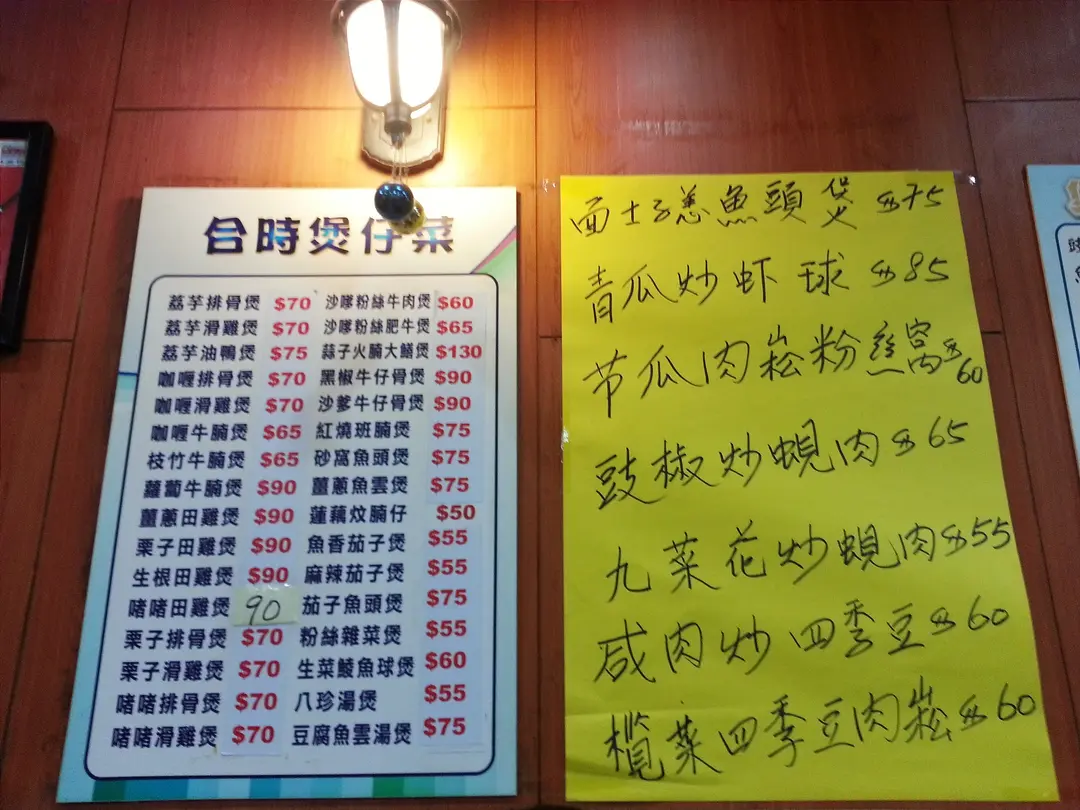 合時煲仔菜
荔芋排骨煲 $70 沙嗲粉絲牛肉煲 $60
荔芋滑雞煲 $70 沙嗲粉絲肥牛煲 $65
荔芋油鴨煲 $75 蒜子火腩大鱔煲 $130
咖喱排骨煲 $70 黑椒牛仔骨煲 $90
咖喱滑雞煲 $70 沙爹牛仔骨煲 $90
咖喱牛腩煲 $65 紅燒班腩煲 $75
枝竹牛腩煲 $65 砂窩魚頭煲 $75
蘿蔔牛腩煲 $90 薑蔥魚雲煲 $75
薑蔥田雞煲 $90 蓮藕炆腩仔 $50
栗子田雞煲 $90 魚香茄子煲 $55
生根田雞煲 $90 麻辣茄子煲 $55
啫啫田雞煲 90 茄子魚頭煲 $75
栗子排骨煲 $70 粉絲雜菜煲 $55
栗子滑雞煲 $70 生菜鯪魚球煲 $60
啫啫排骨煲 $70 八珍湯煲 $55
啫啫滑雞煲 $70 豆腐魚雲湯煲 $75
面士蔥魚頭煲 $75
青瓜炒虾球 $85
节瓜肉崧粉丝窩 $60
豉椒炒蜆肉 $65
九菜花炒蜆肉 $55
咸肉炒四季豆 $60
欖菜四季豆肉崧 $60